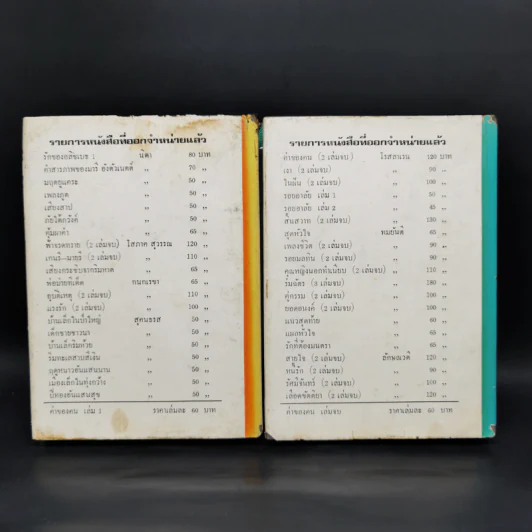 รายการหนังสือที่ออกจำหน่ายแล้ว
รักของอลิซเบธ : นิดา 80 บาท
คำสารภาพของมารี อังตัวเนตต์ ,, 70 ,,
มฤตยูแคระ ,, 50 ,,
เพลงภูต ,, 50 ,,
เสียงสาป ,, 50 ,,
ภัยใต้ภวังค์ ,, 50 ,,
,, 65 ,,
ฟ้าจรดทราย (2 เล่มจบ) โสภาค สุวรรณ 120 ,,
เกนรี-มายรี (2 เล่มจบ) ,, 110 ,,
,, 65 ,,
พ่อม่ายทีเด็ด กนกเรขา 65 ,,
อุบัติเหตุ (2 เล่มจบ) ,, 110 ,,
แรงรัก (2 เล่มจบ) ,, 100 ,,
บ้านเล็กในป่าใหญ่ สุคนธรส 50 ,,
เด็กชายชาวนา ,, 50 ,,
บ้านเล็กริมห้วย ,, 50 ,,
ริมทะเลสาบสีเงิน ,, 50 ,,
ฤดูหนาวอันแสนนาน ,, 50 ,,
เมืองเล็กในทุ่งกว้าง ,, 50 ,,
ปีทองอันแสนสุข ,, 50 ,,
ค่าของคน เล่ม 1 ราคาเล่มละ 60 บาท
รายการหนังสือที่ออกจำหน่ายแล้ว
ค่าของคน (2 เล่มจบ) โรสลาเรน 120 บาท
เงา (2 เล่มจบ) ,, 90 ,,
ในฝัน (2 เล่มจบ) ,, 100 ,,
รอยอาลัย เล่ม 1 ,, 50 ,,
รอยอาลัย เล่ม 2 ,, 45 ,,
สิ้นสวาท (2 เล่มจบ) ,, 130 ,,
สุดหัวใจ ทมยันตี 65 ,,
เพลงชีวิต (2 เล่มจบ) ,, 90 ,,
รอยมลทิน (2 เล่มจบ) ,, 90 ,,
คุณหญิงนอกทำเนียบ (2 เล่มจบ) ,, 110 ,,
ร่มฉัตร (3 เล่มจบ) ,, 180 ,,
คู่กรรม (2 เล่มจบ) ,, 100 ,,
ยอดอนงค์ (2 เล่มจบ) ,, 100 ,,
แนวสุดท้าย ,, 60 ,,
แผลหัวใจ ,, 65 ,,
รักที่ต้องมนตรา ,, 65 ,,
สายใจ (2 เล่มจบ) ลักษณวดี 120 ,,
หนี้รัก (2 เล่มจบ) ,, 90 ,,
รัศมีจันทร์ (2 เล่มจบ) ,, 100 ,,
เลือดขัตติยา (2 เล่มจบ) ,, 120 ,,
ค่าของคน เล่มจบ ราคาเล่มละ 60 บาท